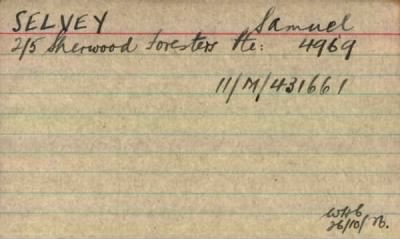 SELVEY Samuel
2/5 Sherwood Foresters Pte: 4969
11/M/431661
26/10/